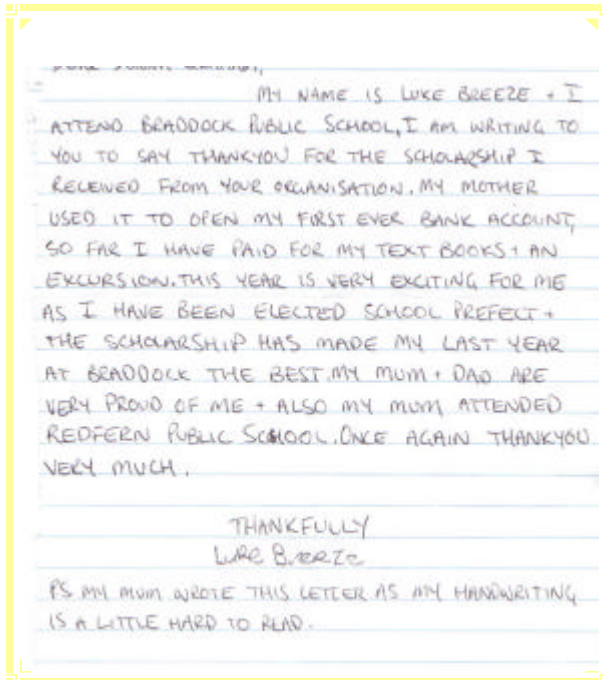 MY NAME IS LUKE BREEZE + I
ATTEND BRADDOCK PUBLIC SCHOOL, I AM WRITING TO
YOU TO SAY THANKYOU FOR THE SCHOLARSHIP I
RECEIVED FROM YOUR ORGANISATION. MY MOTHER
USED IT TO OPEN MY FIRST EVER BANK ACCOUNT,
SO FAR I HAVE PAID FOR MY TEXT BOOKS + AN
EXCURSION. THIS YEAR IS VERY EXCITING FOR ME
AS I HAVE BEEN ELECTED SCHOOL PREFECT +
THE SCHOLARSHIP HAS MADE MY LAST YEAR
AT BRADDOCK THE BEST. MY MUM + DAD ARE
VERY PROUD OF ME + ALSO MY MUM ATTENDED
REDFERN PUBLIC SCHOOL. ONCE AGAIN THANKYOU
VERY MUCH.
THANKFULLY
Luke Breeze
PS MY MUM WROTE THIS LETTER AS MY HANDWRITING
IS A LITTLE HARD TO READ.